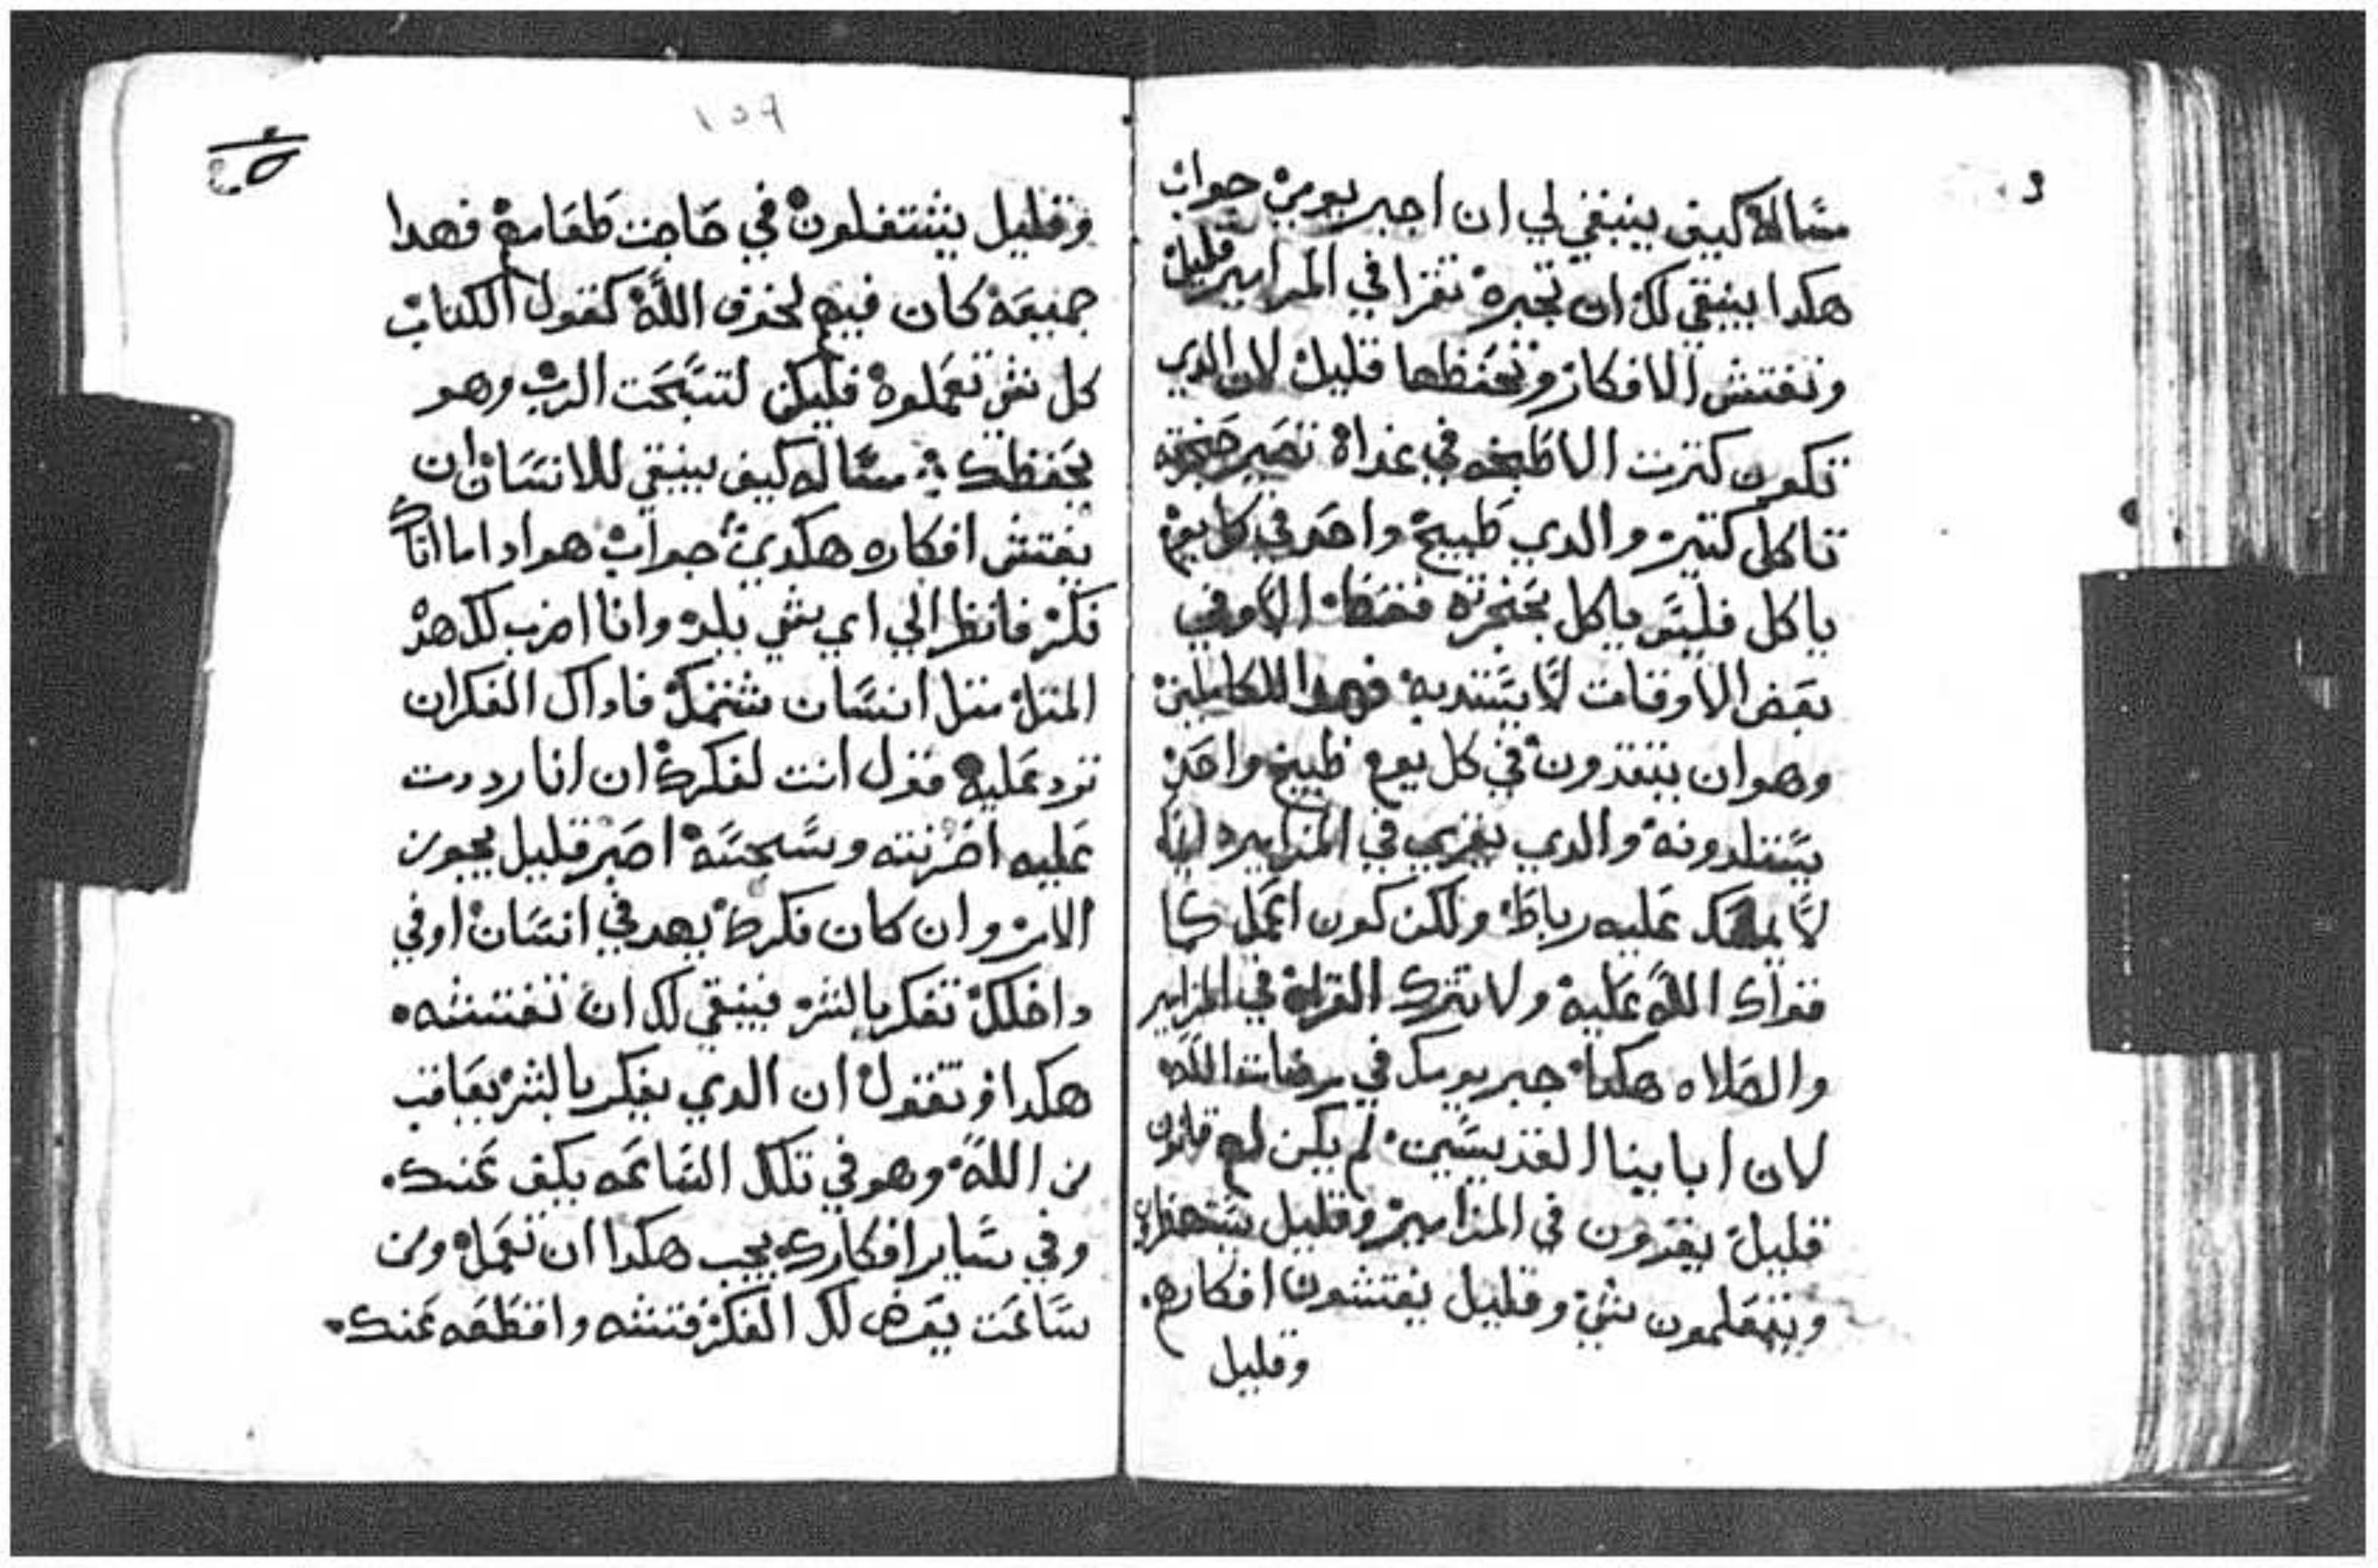 مساله كيف ينبغي لي ان اجبر يومي جواب
هكدا ينبغي لك ان تجبره تقرا في المزامير قليل
وتفتش الافكار وتحفظها قليل لان الدي
تكون كترت الاطبخه في غداه تصير حنجرته
تاكل كتير والدي طبيخ واحد في كل يوم
ياكل فليس ياكل بحنجرته فقط الا وفي
بعض الاوقات لا يستديه فهدا للكاملين
وهو ان يتقدرون في كل يوم طبيخ واحد
يستلدونه والدي يقري في المزامير
لا عليه رباط ولكن كون اعمل كما
قواك الله عليه ولا تترك القراه في المزامير
والصلاه هكدا جبر يومك في مرضات الله
لان ابابينا القديسين لم يكن لهم قانون
قليل يقرون في المزامير وقليل
ويتعلمون شي وقليل يفتشون افكارهم
وقليل
١٥٩
وقليل يشتغلون في حاجت طعامهم فهدا
جميعه كان فيهم لخوف الله كقول الكتاب
كل شي تعملوه فليكن لتسبحت الرب وهو
يحفظك مساله كيف ينبغي للانسان ان
يفتش افكاره هكدي جواب هو ادا ما اتاك
فكر فانظر الي اي شي يلد وانا اضرب لك هدا
المتل متل انسان شتمك فاداك الفكر ان
ترد عليه فقول انت لفكرك ان انا رددت
عليه احزنته وسجسته اصبر قليل يجوز
الامر وان كان فكرك يهد في انسان او في
داخلك تفكر بالشر فينبغي لك ان تفتشه
هكدا وتقول ان الدي يفكر بالشر يعاقب
من الله وهو في تلك الساعه يكف عنك
وفي ساير افكارك يجب هكدا ان تعمل ومن
ساعت يعرض لك الفكر فتشه واقطعه عنك